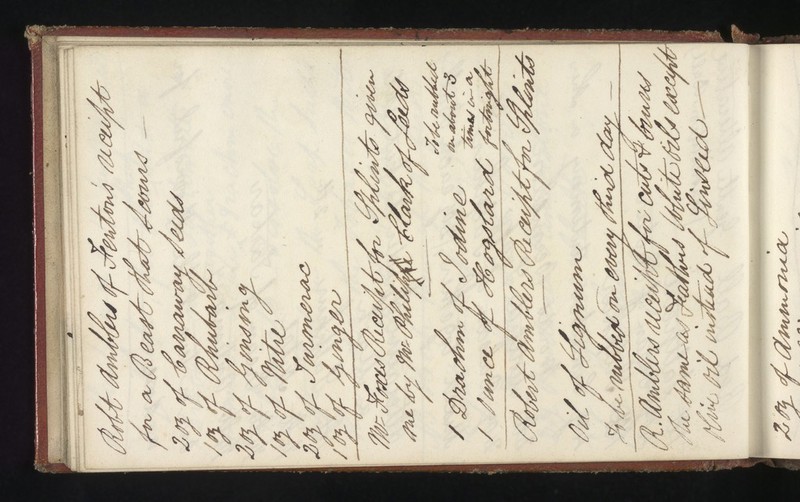 Robt Amblers of Fenton's receipt
for a Beast that Scours —
2oz of Carraway Seeds
1oz of Rhubarb
2oz of Ginseng
1oz of Nitre
2oz of Turmerac
1oz of Ginger
Mr Foxes Receipt for Splints given
me by Mr Philip Clark of Leeds
1 Drachm of Iodine
1 ounce of Hogslard
To be rubbed
on about 3
times in a
fortnight
Robert Amblers Receipt for Splints
Oil of Lignum
To be rubbed on every third day —
R. Amblers receipt for cuts &
the same as White Oils except
Olive Oil instead of Linseed —
2oz of Ammonia